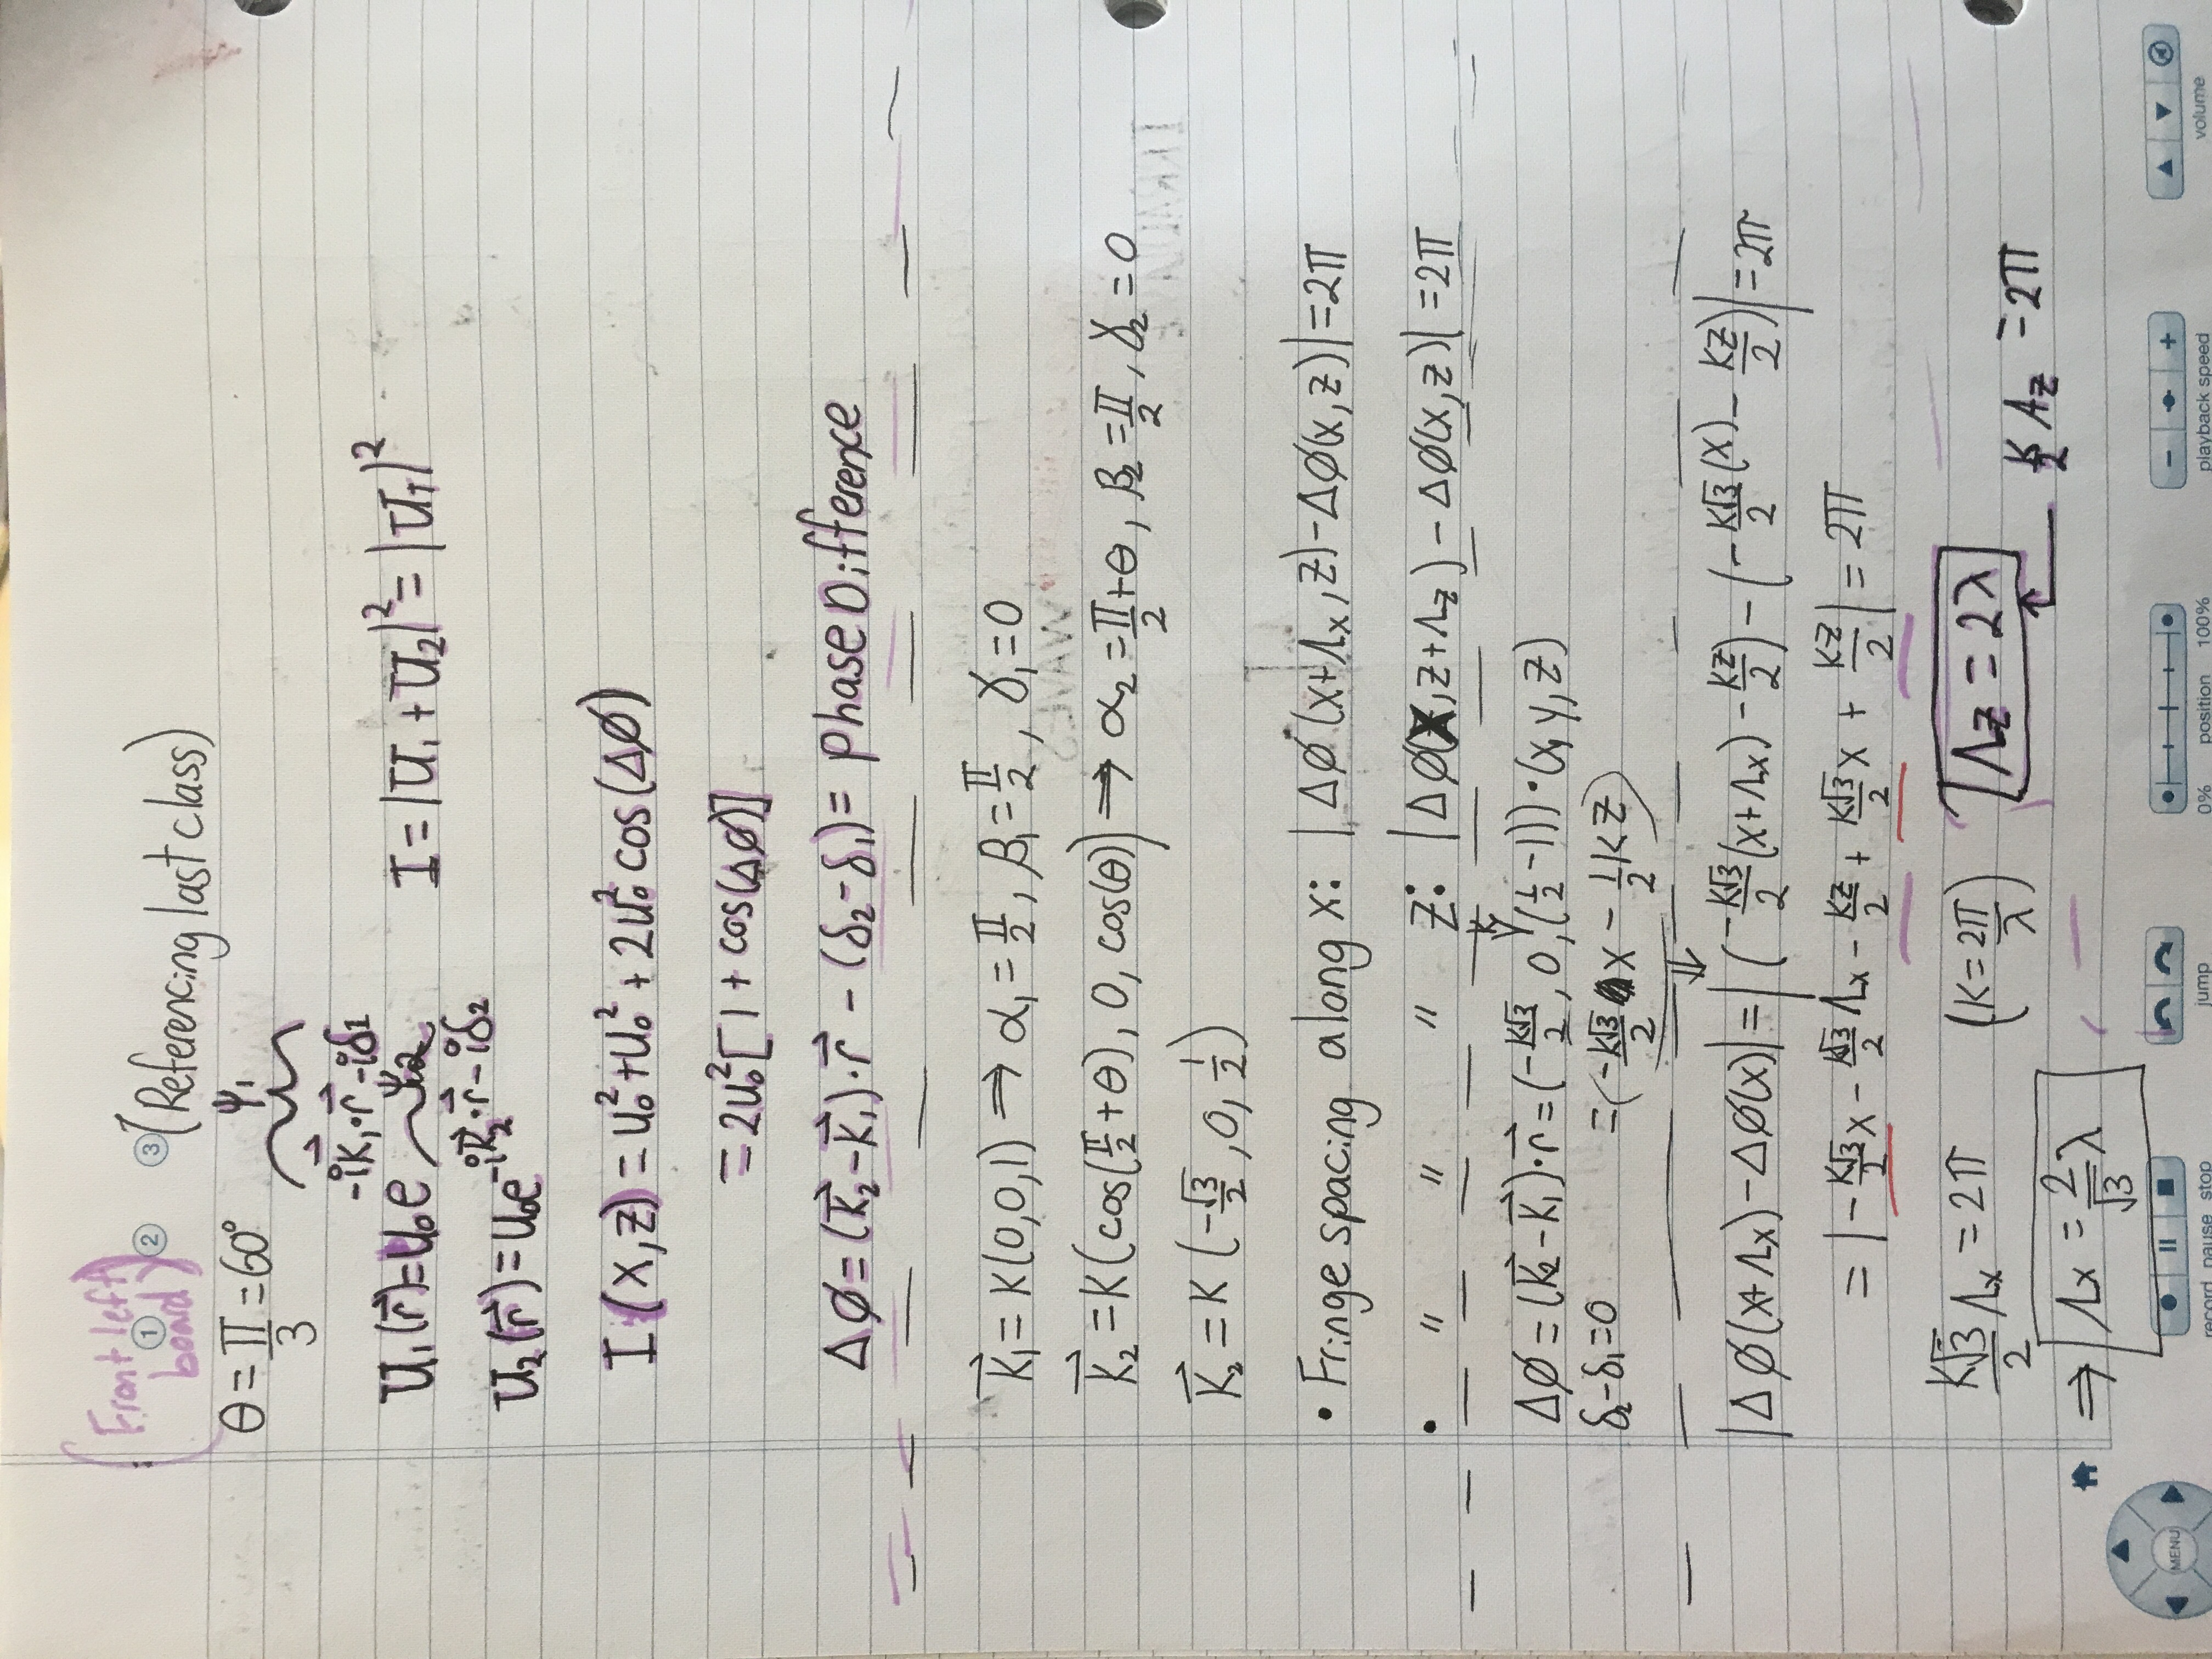 (Front left board) ① ② ③ (Referencing last class)
θ = π/3 = 60° ψ₁
U₁(r⃗) = U₀e^(-ik⃗₁·r⃗-iδ₁) I = |U₁ + U₂|² = |U₁|²
ψ₂
U₂(r⃗) = U₀e^(-ik⃗₂·r⃗-iδ₂)
I(x,z) = U₀² + U₀² + 2U₀² cos(Δø)
= 2U₀²[1 + cos(Δø)]
Δø = (k⃗₂ - k⃗₁)·r⃗ - (δ₂ - δ₁) = Phase Difference
k⃗₁ = k(0,0,1) ⇒ α₁ = π/2, β₁ = π/2, γ₁ = 0
k⃗₂ = k(cos(π/2 + θ), 0, cos(θ)) ⇒ α₂ = π/2 + θ, β₂ = π/2, γ₂ = 0
k⃗₂ = k(-√3/2, 0, 1/2)
• Fringe spacing along x: |Δø(x+Λx, z) - Δø(x,z)| = 2π
• " " " z: |Δø(x, z+Λz) - Δø(x,z)| = 2π
Δø = (k⃗₂ - k⃗₁)·r⃗ = (-k√3/2, 0, k(1/2 - 1))·(x,y,z)
δ₂ - δ₁ = 0 = (-k√3/2 x - 1/2 kz)
⇓
|Δø(x+Λx) - Δø(x)| = |(-k√3/2 (x+Λx) - kz/2) - (-k√3/2 (x) - kz/2)| = 2π
= |-k√3/2 x - k√3/2 Λx - kz/2 + k√3/2 x + kz/2| = 2π
k√3/2 Λx = 2π (k = 2π/λ) Λz = 2λ
⇒ Λx = 2/√3 λ k/2 Λz = 2π
MENU
record pause stop
jump
0% position 100%
playback speed
volume